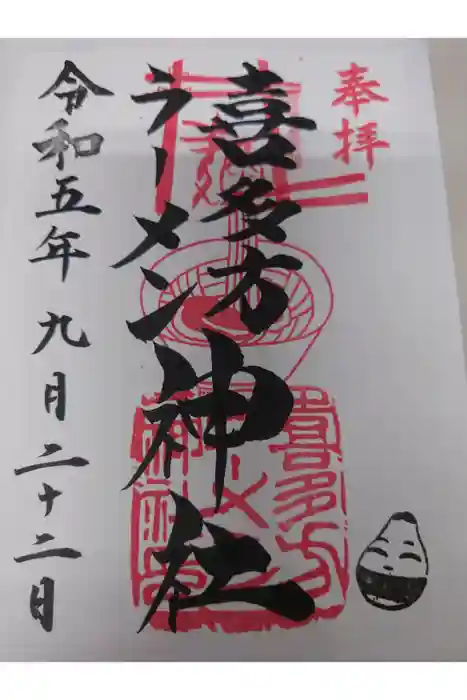 奉拝
喜多方
ラーメン
神社
令和五年九月二十二日
喜多方
ラーメン
神社